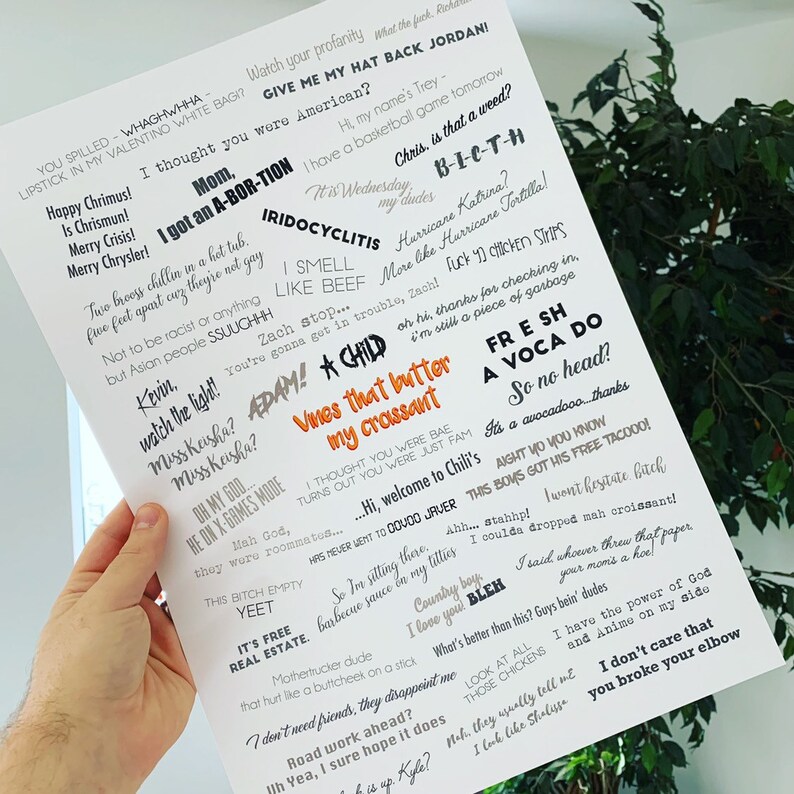 Watch your profanity
What the fuck, Richard...
GIVE ME MY HAT BACK JORDAN!
YOU SPILLED - WHAGHWHHA -
LIPSTICK IN MY VALENTINO WHITE BAG!?
I thought you were American?
Hi, my name's Trey -
I have a basketball game tomorrow
Chris, is that a weed?
Happy Chrimus!
Is Chrismun!
Merry Crisis!
Merry Chrysler!
Mom,
I got an A-BOR-TION
It is Wednesday,
my dudes
B-I-C-T-H
IRIDOCYCLITIS
Hurricane Katrina?
More like Hurricane Tortilla!
Two brooss chillin in a hot tub,
five feet apart cuz they're not gay
I SMELL
LIKE BEEF
fuck yo chicken strips
Not to be racist or anything
but Asian people SSUUGHHH
Zach stop...
You're gonna get in trouble, Zach!
oh hi, thanks for checking in,
i'm still a piece of garbage
Kevin,
watch the light!
ADAM!
A CHILD
FR E SH
A VOCA DO
Vines that butter
my croissant
So no head?
Miss Keisha?
Miss Keisha?
It's a avocadooo...thanks
I THOUGHT YOU WERE BAE
TURNS OUT YOU WERE JUST FAM
AIGHT YO YOU KNOW
THIS BOYS GOT HIS FREE TACOOO!
OH MY GOD...
HE ON X-GAMES MODE
...Hi, welcome to Chili's
I won't hesitate, bitch
Mah God,
they were roommates...
HAS NEVER WENT TO OOVOO JAVER
Ahh... stahhp!
I coulda dropped mah croissant!
THIS BITCH EMPTY
YEET
So I'm sitting there,
barbecue sauce on my titties
I said, whoever threw that paper,
your mom's a hoe!
IT'S FREE
REAL ESTATE.
Country boy,
I love you. BLEH
What's better than this? Guys bein' dudes
I have the power of God
and Anime on my side
Mothertrucker dude
that hurt like a buttcheek on a stick
LOOK AT ALL
THOSE CHICKENS
I don't care that
you broke your elbow
I don't need friends, they disappoint me
Nah, they usually tell me
I look like Shalissa
Road work ahead?
Uh Yea, I sure hope it does
is up, Kyle?